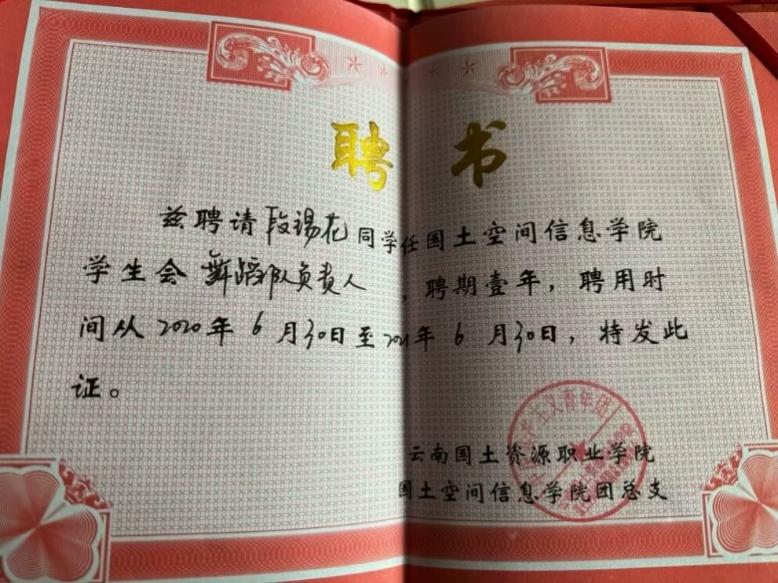 聘 书
兹聘请段锡花同学任国土空间信息学院
学生会 舞蹈队负责人 ，聘期壹年，聘用时
间从2020年6月30日至2021年6月30日，特发此
证。
云南国土资源职业学院
国土空间信息学院团总支